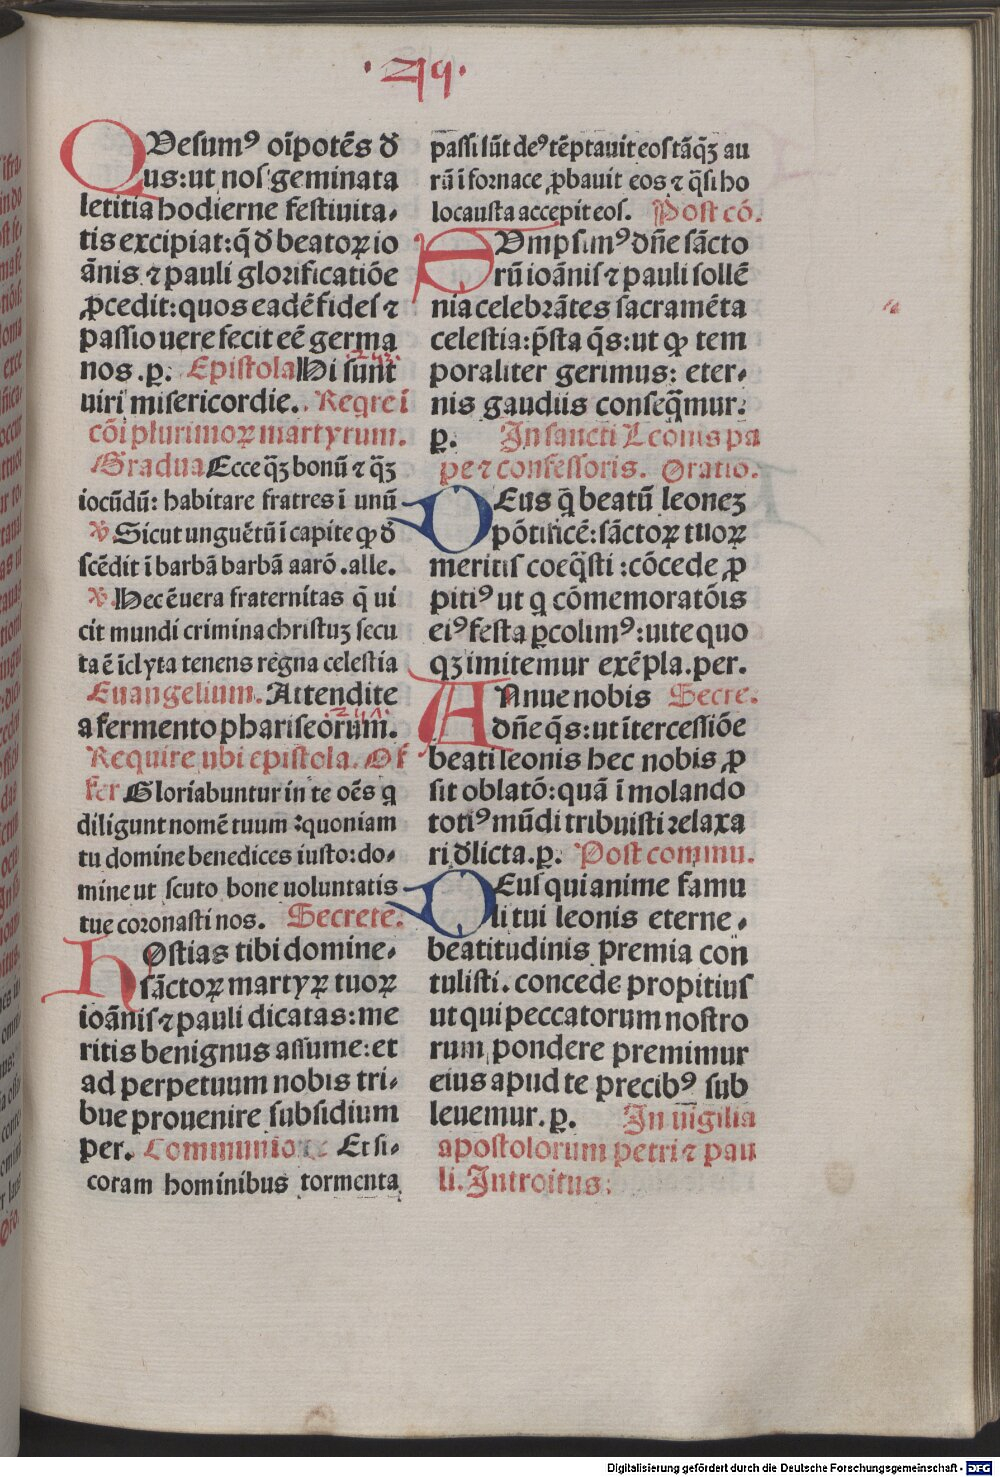 · 2 4 9 ·
QVesumꝰ oı̄potēs ꝺ̄
us: ut nos geminata
letitia hodierne festiuita⸗
tis excipiat: q̄ ꝺ̄ beatoꝝ io
ānis ⁊ pauli glorificatiōe
ꝓcedit: quos eadē fides ⁊
passio uere fecit eē germa
nos .p̲. Epistola Hi sunt
uiri misericordie. Reqre ī
cōi plurimoꝝ martyrum.
Gradua Ecce qꝫ bonū ⁊ qꝫ
iocūdū: habitare fratres ī unū
℣ Sicut unguētū ī capite ꝙ ꝺ̄
scēdit ī barbā barbā aarō .alle.
℣. Hec ē uera fraternitas q̄ ui
cit mundi crimina christuꝫ secu
ta ē īclyta tenens regna celestia
Euangelium. Attendite
a fermento phariseorum.
Require ubi epistola. Of
fer Gloriabuntur in te oēs q
diligunt nomē tuum : quoniam
tu domine benedices iusto: do⸗
mine ut scuto bone uoluntatis
tue coronasti nos. Secrete.
HOstias tibi domine⸗
sāctoꝝ martyꝝ tuoꝝ
ioānis ⁊ pauli dicatas: me
ritis benignus assume: et
ad perpetuum nobis tri⸗
bue prouenire subsidium
per. Communio Et si⸗
coram hominibus tormenta
passi sūt deꝰ tēptauit eos tāqꝫ au
rū ī fornace ꝓbauit eos ⁊ q̄si ho
locausta accepit eos. Post cō.
SVmpsimꝰ dn̄e sācto
rū ioānis ⁊ pauli sollē
nia celebrātes sacramēta
celestia: p̄sta q̄s: ut ꝙ tem
poraliter gerimus: eter⸗
nis gaudiis conseq̄mur.
p̲. In sancti Leonis pa
pe ⁊ confessoris. Oratio.
DEus q̄ beatū leoneꝫ
pōtificē: sāctoꝝ tuoꝝ
meritis coeq̄sti : cōcede ꝓ
pitiꝰ ut q cōmemoratōis
eiꝰ festa p̲colimꝰ: uite quo
qꝫ imitemur exēpla. per.
ANnue nobis Secre.
dn̄e q̄s: ut ītercessiōe
beati leonis hec nobis ꝓ
sit oblatō: quā īmolando
totiꝰ mūdi tribuisti relaxa
ri ꝺ̄licta. p̲. Post commu.
DEus qui anime famu
li tui leonis eterne ⸗
beatitudinis premia con
tulisti. concede propitius
ut qui peccatorum nostro
rum pondere premimur
eius apud te precibꝰ sub
leuemur. p̲. In uigilia
apostolorum petri ⁊ pau
li. Introitus:
Digitalisierung gefördert durch die Deutsche Forschungsgemeinschaft - DFG